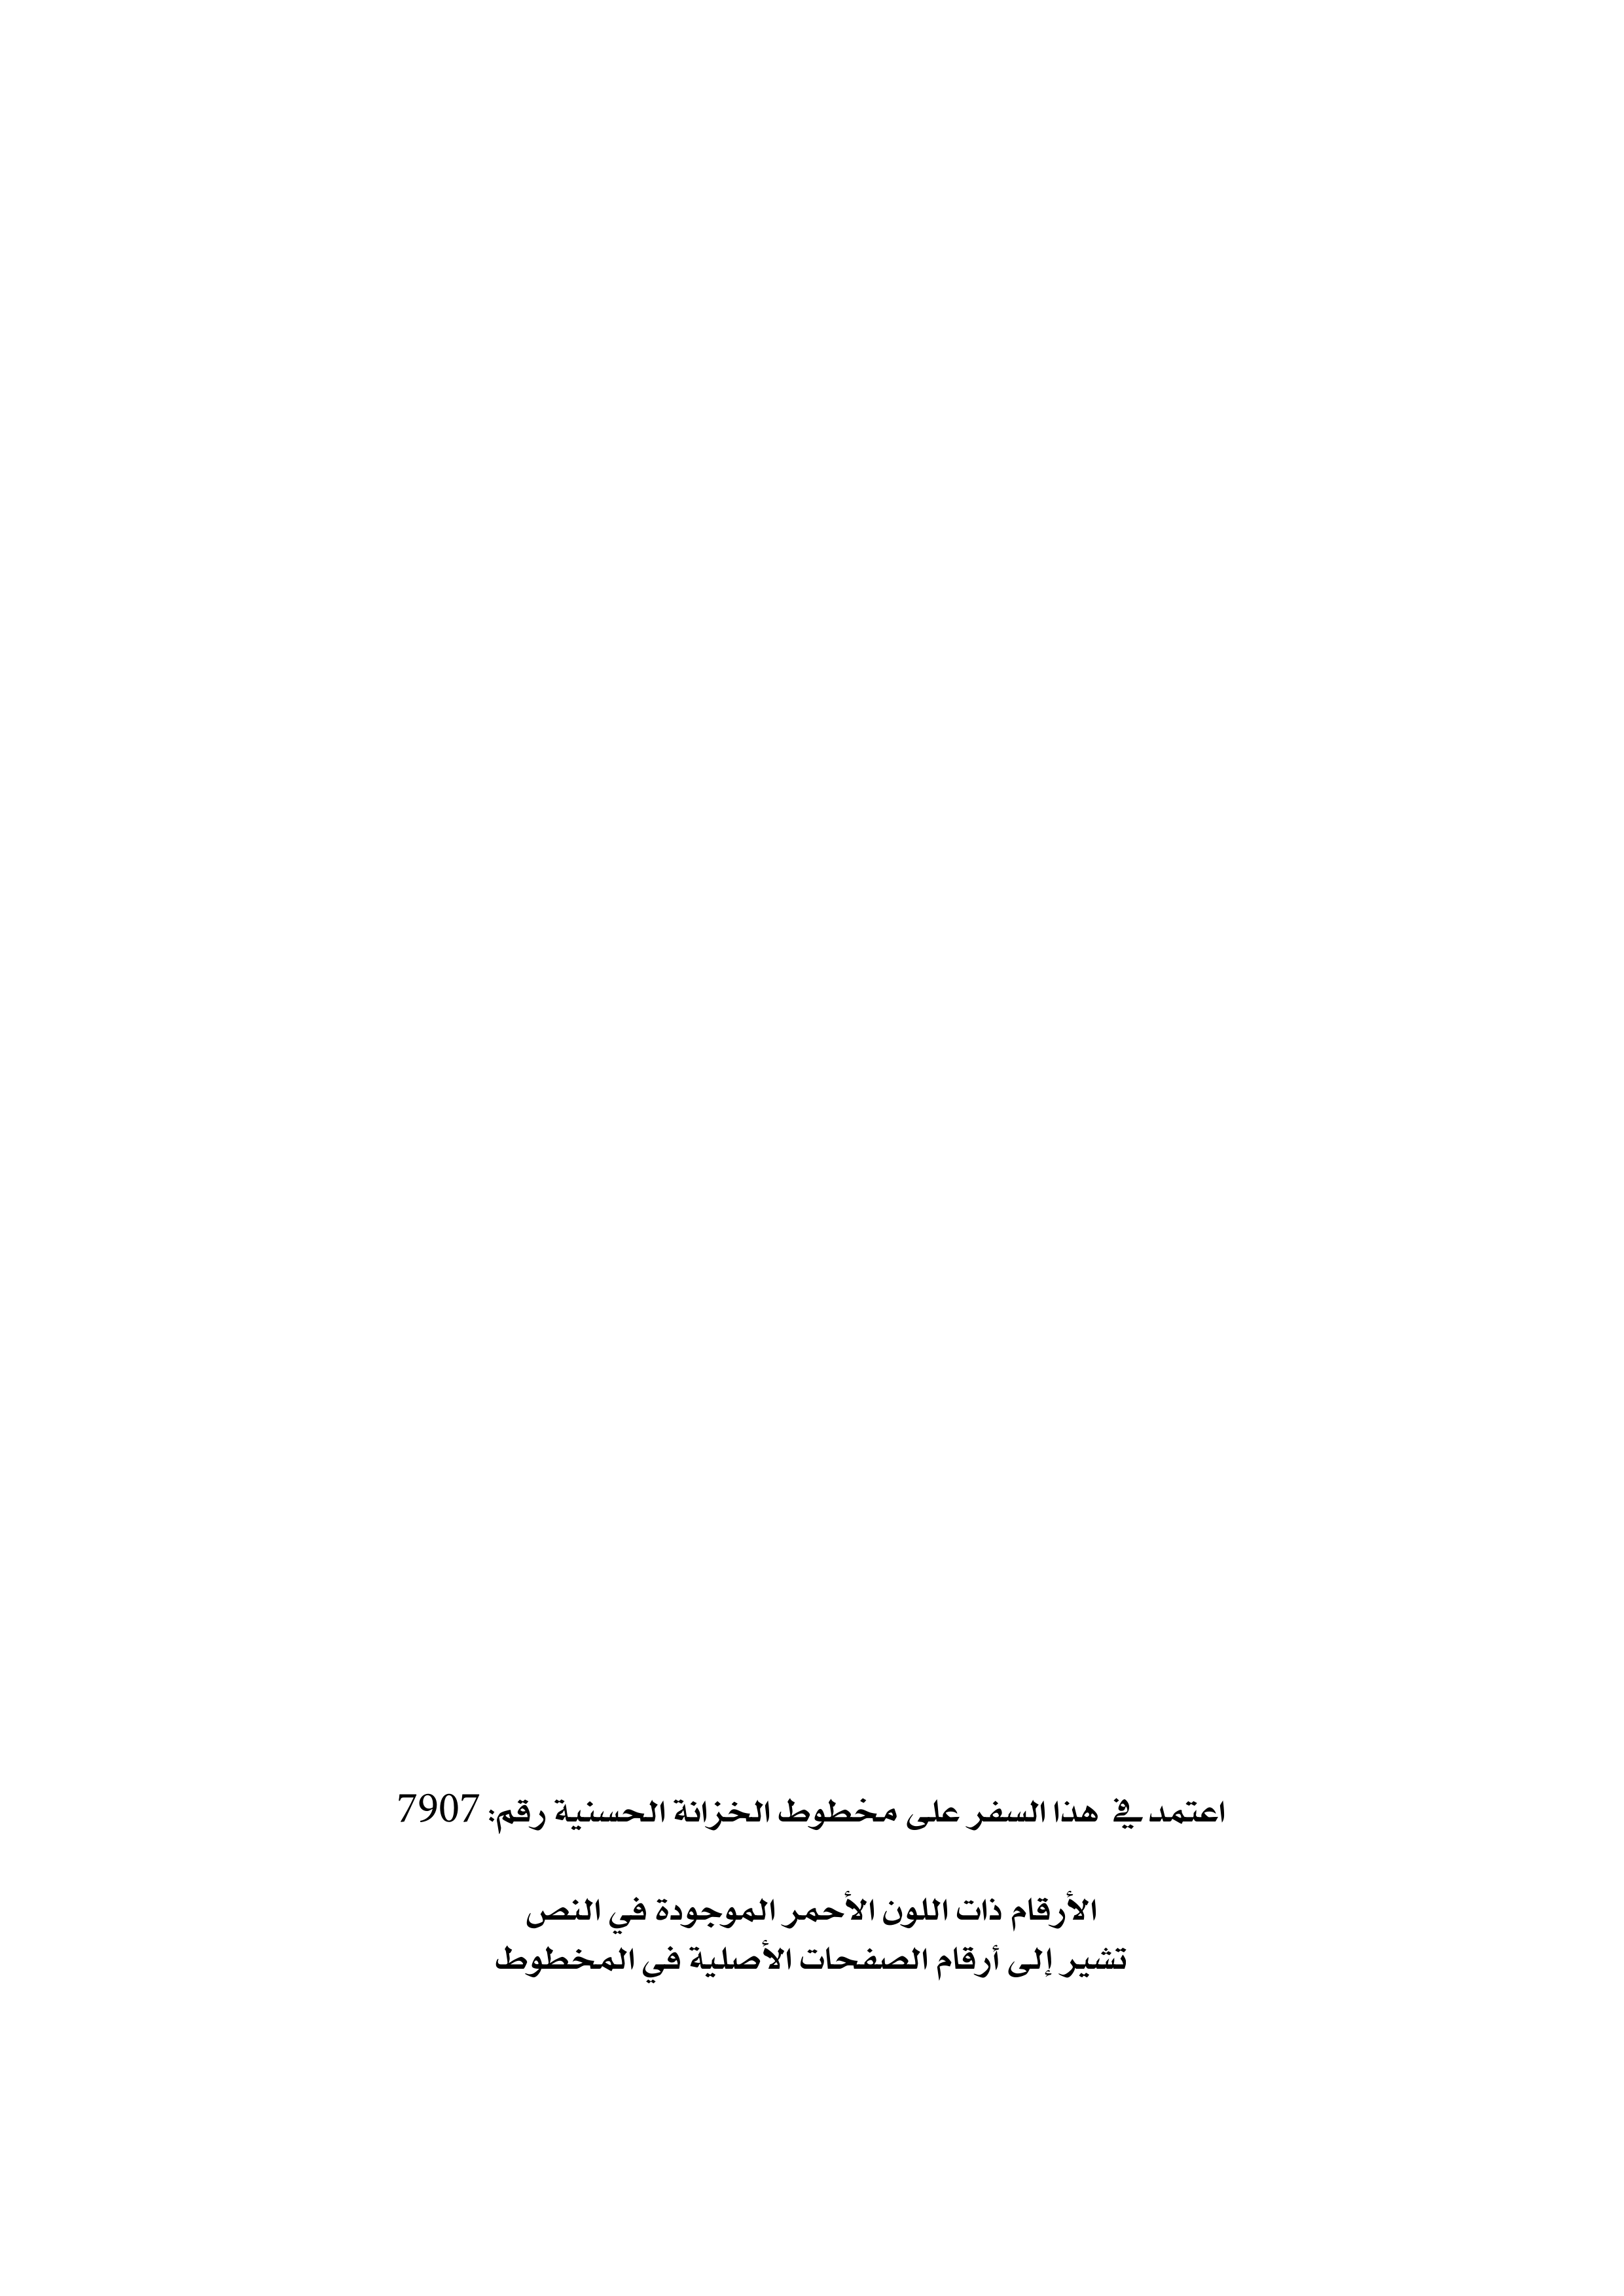 اعتمد في هذا السفر على مخطوط الخزانة الحسنية رقم: 7907
الأرقام ذات اللون الأحمر الموجودة في النص
تشير إلى أرقام الصفحات الأصلية في المخطوط